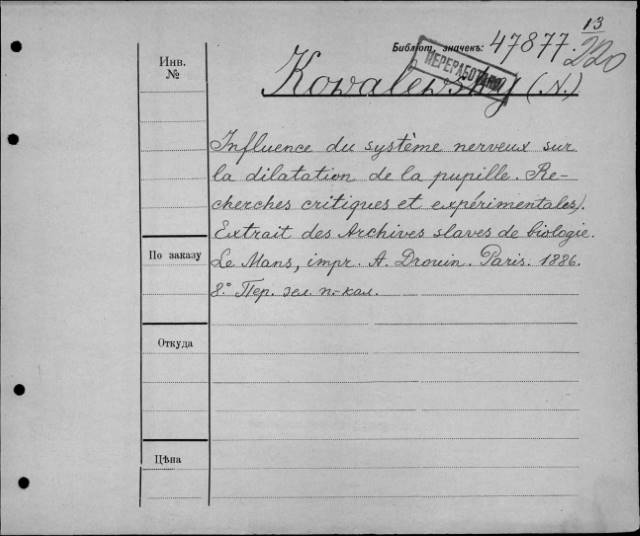 13
Библіот. значекъ: 47877. 220
ПЕРЕРАБОТАНО
Инв.
№
Kowalewsky (N.)
Influence du système nerveux sur
la dilatation de la pupille. Re-
cherches critiques et expérimentales).
Extrait des Archives slaves de biologie.
По заказу
Le Mans, impr. A. Drouin. Paris. 1886.
8.° Пер. зел. п.-кал.
Откуда
Цѣна